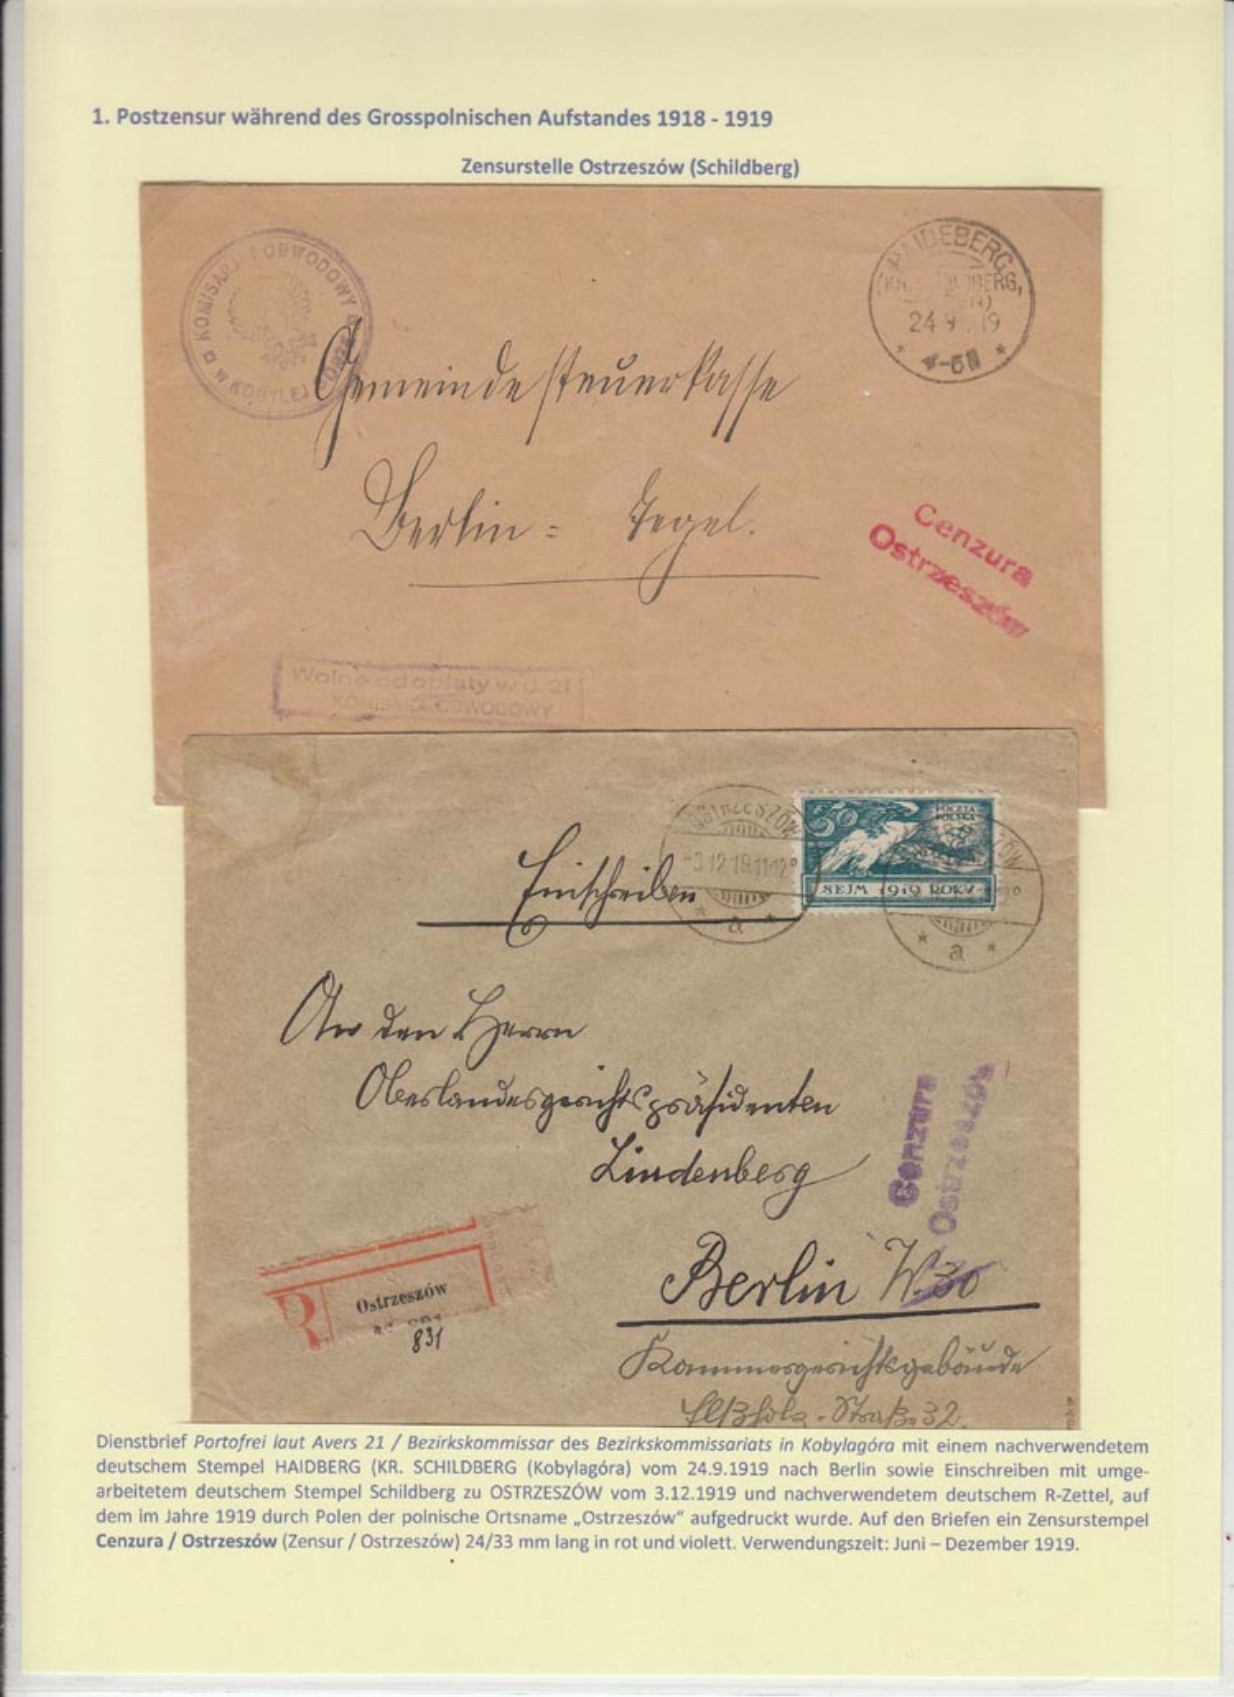 1. Postzensur während des Grosspolnischen Aufstandes 1918 - 1919
Zensurstelle Ostrzeszów (Schildberg)
KOMISARJAT OBWODOWY
W KOBYLEJ GÓRZE
HAIDEBERG,
24 9 . 19
Gemeindesteuerkasse
Berlin = Tegel.
Cenzura
Ostrzeszów
Wolne od opłaty w U. 21
KOMISARZ OBWODOWY
OSTRZESZÓW
-3.12.19.11-12°
a
50
POCZTA
POLSKA
SEJM 1919 ROKU
a
Einschreiben
An den Herrn
Oberlandesgerichtspräsidenten
Lindenberg
Cenzura
Ostrzeszów
Berlin W. 30
R
Ostrzeszów
831
Kammergerichtsgebäude
Elßholz-Straße 32.
Dienstbrief Portofrei laut Avers 21 / Bezirkskommissar des Bezirkskommissariats in Kobylagóra mit einem nachverwendetem
deutschem Stempel HAIDBERG (KR. SCHILDBERG (Kobylagóra) vom 24.9.1919 nach Berlin sowie Einschreiben mit umge-
arbeitetem deutschem Stempel Schildberg zu OSTRZESZÓW vom 3.12.1919 und nachverwendetem deutschem R-Zettel, auf
dem im Jahre 1919 durch Polen der polnische Ortsname „Ostrzeszów“ aufgedruckt wurde. Auf den Briefen ein Zensurstempel
Cenzura / Ostrzeszów (Zensur / Ostrzeszów) 24/33 mm lang in rot und violett. Verwendungszeit: Juni – Dezember 1919.